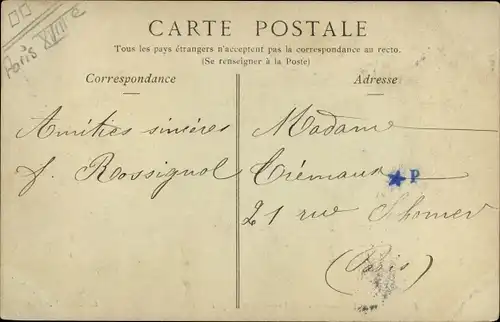 Paris XIIIe
CARTE POSTALE
Tous les pays étrangers n'acceptent pas la correspondance au recto.
(Se renseigner à la Poste)
Correspondance
Adresse
Amitiés sincères
J. Rossignol
Madame
Trémaux
P
21 rue Thomer
(Paris)